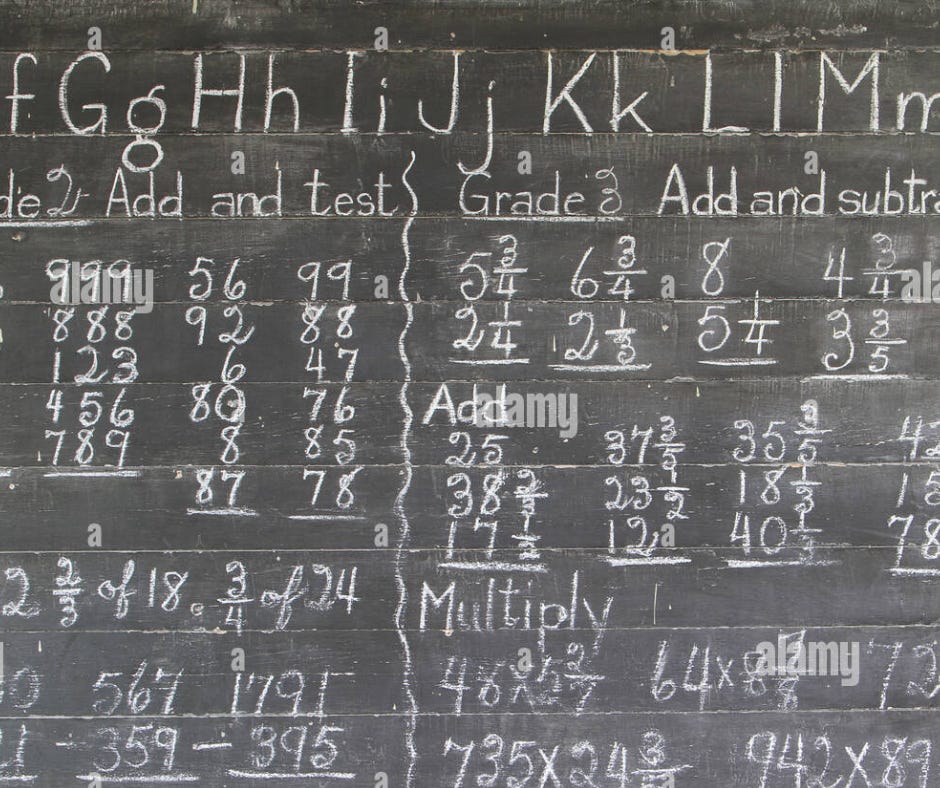 f G g H h I i J j K k L l M m
de 2 Add and test
999 56 99
888 92 88
123 6 47
456 80 76
789 8 85
87 78
2 2/3 of 18. 3/4 of 24
0 567 1791
1 - 359 - 395
Grade 3 Add and subtra
5 3/4 6 3/4 8 4 3/4
2 1/4 2 1/3 5 1/4 3 3/5
Add
25 37 3/5 35 3/5 42
38 2/3 23 1/2 18 1/3 15
17 1/2 12 40 1/2 78
Multiply
48x5 2/7 64x8 72
735x24 3 942x89
alamy
alamy
alamy